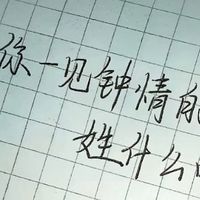 你一见钟情的
姓什么